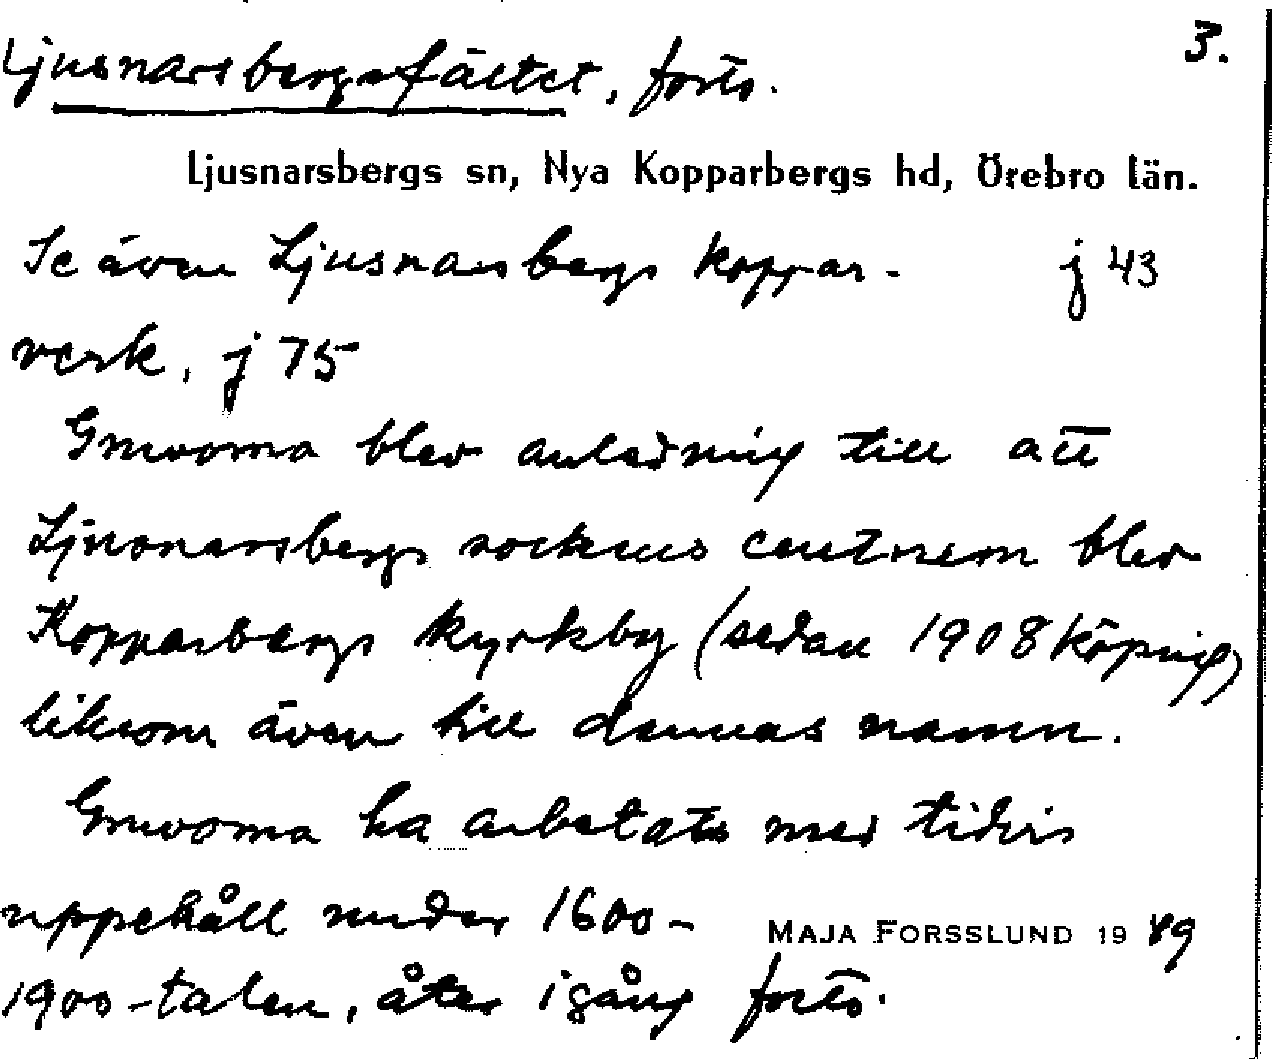 3.
Ljusnarsbergsfältet, forts.
Ljusnarsbergs sn, Nya Kopparbergs hd, Örebro län.
Se även Ljusnarsbergs koppar- j 43
verk, j 75
Gruvorna blev anledning till att
Ljusnarsbergs sockens centrum blev
Kopparbergs kyrkby (sedan 1908 köping)
liksom även till dennas namn.
Gruvorna ha arbetats med tidvis
uppehåll under 1600-
MAJA FORSSLUND 1949
1900-talen, åter igång forts.